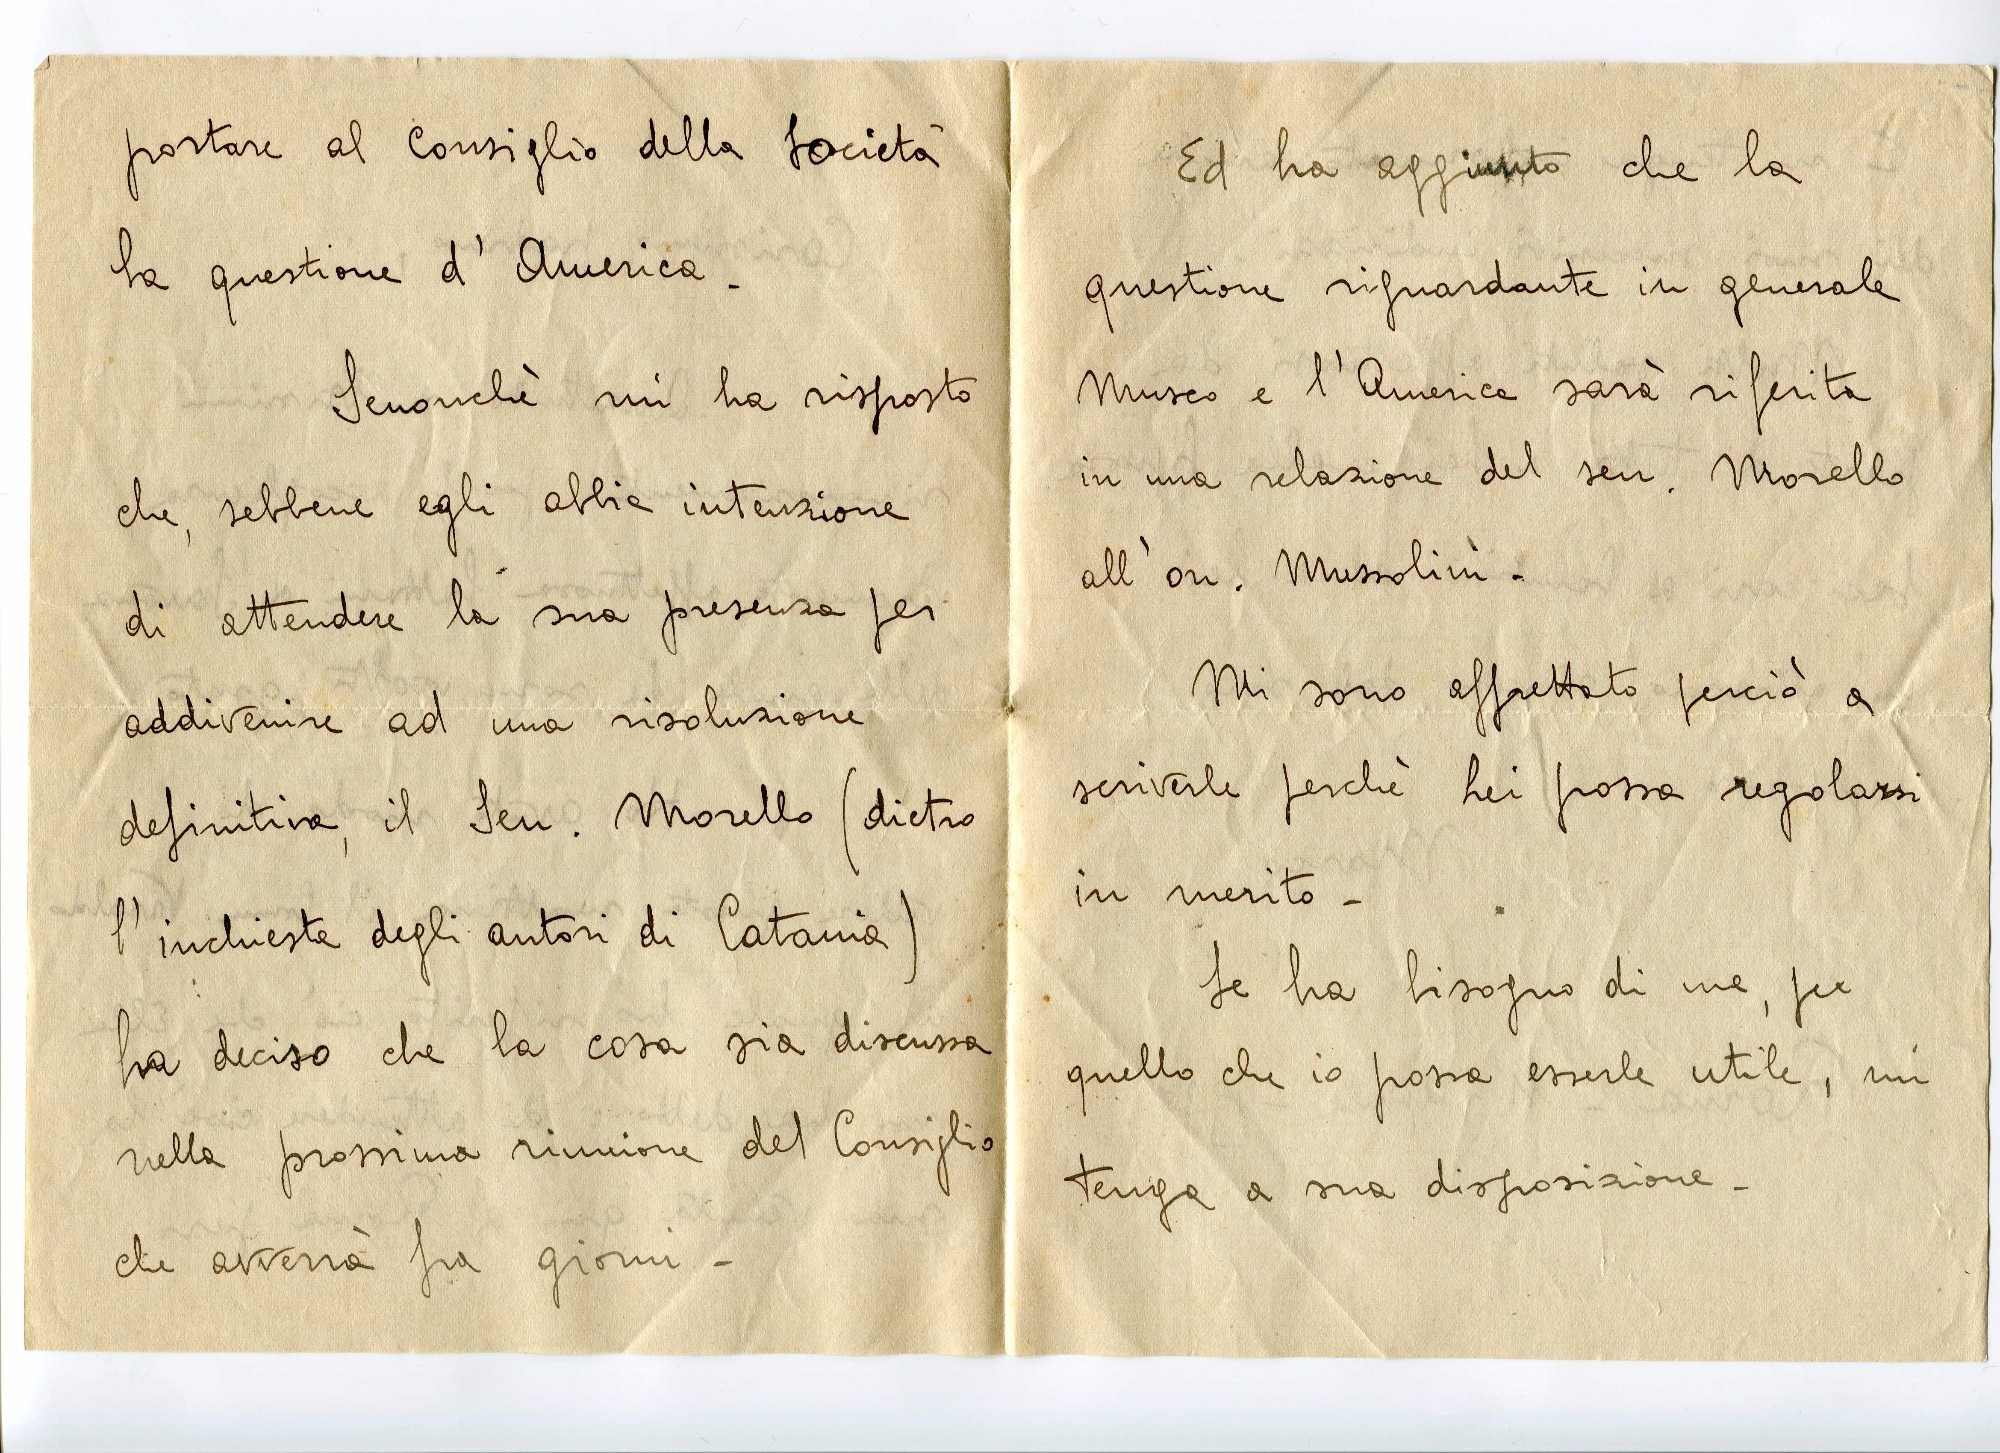 portare al Consiglio della Società
la questione d'America -
Senonchè mi ha risposto
che, sebbene egli abbia intenzione
di attendere la sua presenza per
addivenire ad una risoluzione
definitiva, il Sen. Morello (dietro
l'inchiesta degli autori di Catania)
ha deciso che la cosa sia discussa
nella prossima riunione del Consiglio
che avverrà fra giorni -
Ed ha aggiunto che la
questione riguardante in generale
Musco e l'America sarà riferita
in una relazione del sen. Morello
all'on. Mussolini -
Mi sono affrettato perciò a
scriverle perchè Lei possa regolarsi
in merito -
Se ha bisogno di me, per
quello che io possa esserle utile, mi
tenga a sua disposizione -